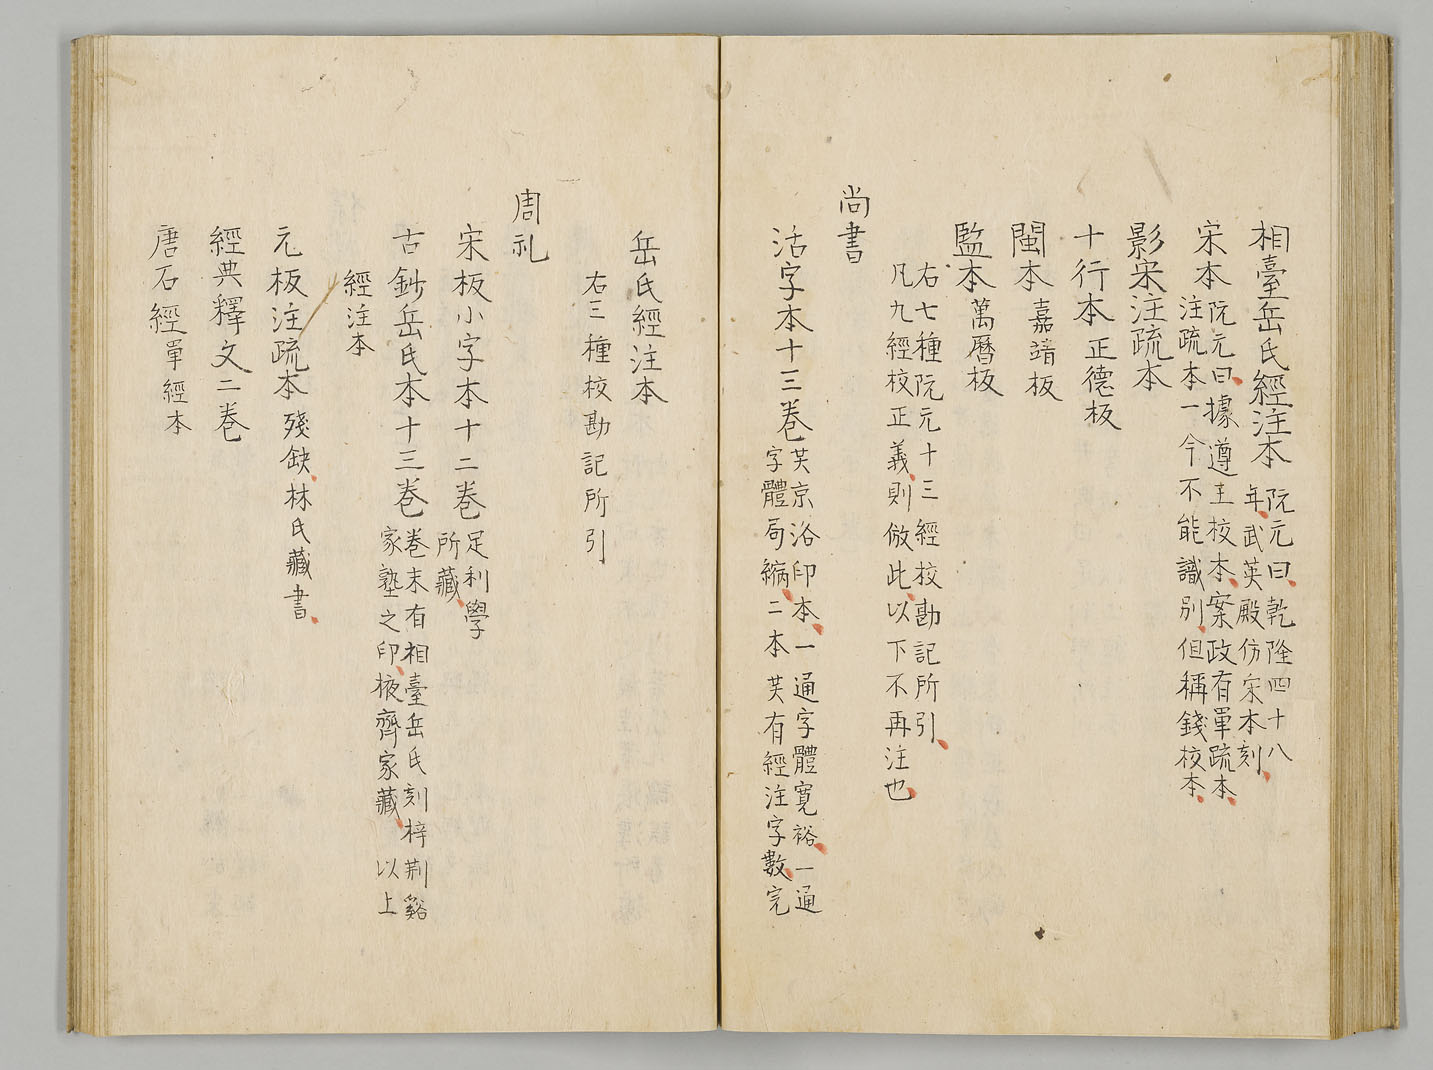 相臺岳氏經注本 阮元曰乾隆四十八
年武英殿仿宋本刻
宋本 阮元曰據遵王校本案政有單疏本
注疏本一今不能識別但稱錢校本
影宋注疏本
十行本 正德板
閩本 嘉靖板
監本 萬曆板
右七種阮元十三經校勘記所引
凡九經校正義則倣此以下不再注也
尚書
活字本十三卷 共京洛印本一通字體寬裕一通
字體局縮二本共有經注字數完
岳氏經注本
右三種校勘記所引
周礼
宋板小字本十二卷 足利學
所藏
古鈔岳氏本十三卷 卷末有相臺岳氏刻梓荆谿
家塾之印掖齊家藏 以上
經注本
元板注疏本 殘缺林氏藏書
經典釋文二卷
唐石經 單經本